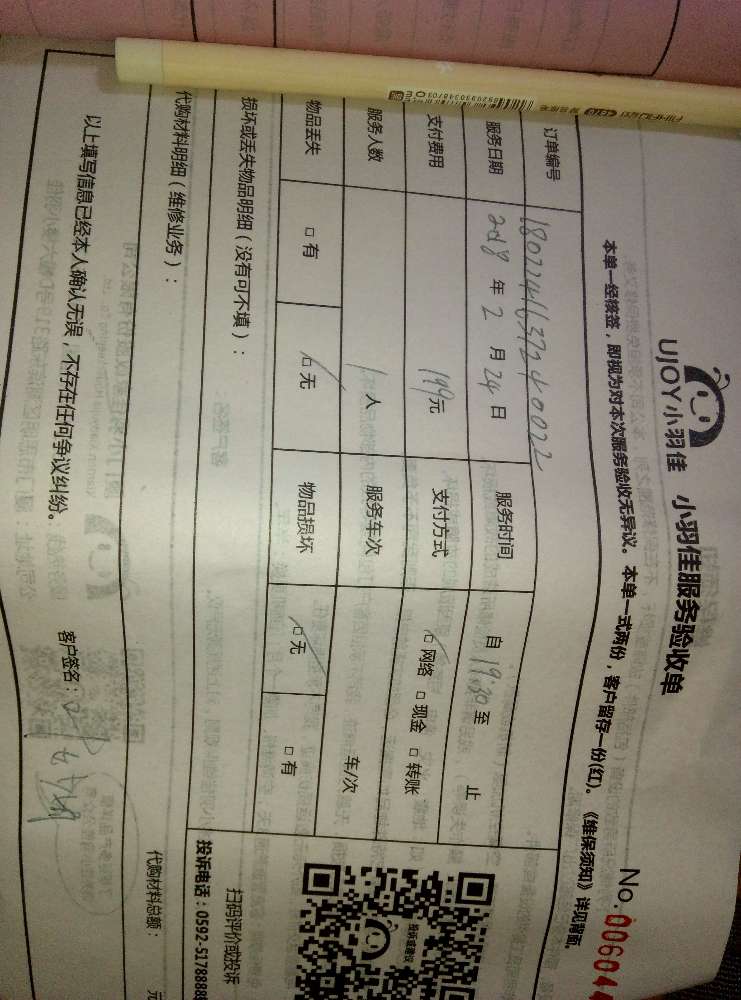 UJOY小羽佳 小羽佳服务验收单
No.006044
本单一经核签，即视为对本次服务验收无异议。本单一式两份，客户留存一份(红)。《维保须知》详见背面。
订单编号 1802241637240022
服务日期 2018 年 2 月 24 日 服务时间 自 19:30 至 止
支付费用 199元 支付方式 □ 网络 □ 现金 □ 转账
服务人数 1 人 服务车次 车/次
物品丢失 □ 有 □ 无 物品损坏 □ 无 □ 有
损坏或丢失物品明细（没有可不填）：
扫码评价或投诉
投诉电话：0592-5178888
代购材料明细（维修业务）：
代购材料总额： 元
以上填写信息已经本人确认无误，不存在任何争议纠纷。 客户签名：